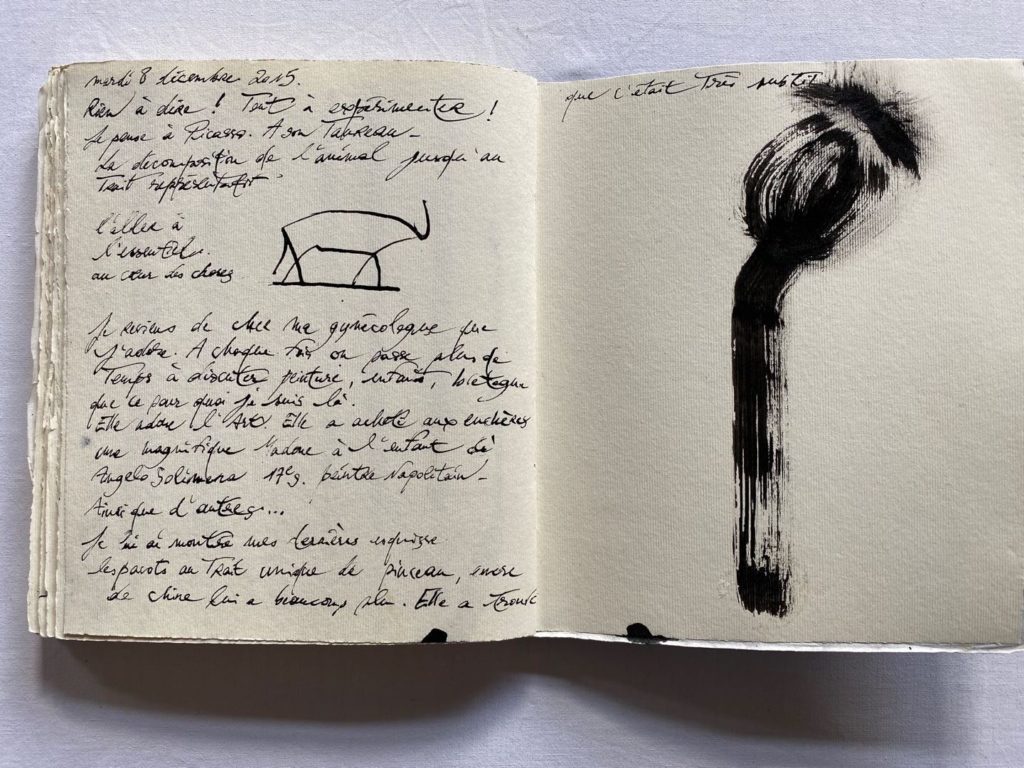 mardi 8 décembre 2015.
Rien à dire ! Tout à expérimenter !
Je pense à Picasso. A son Taureau -
La décomposition de l'animal jusqu'au
Trait représentatif
l'aller à
l'essentiel.
au cœur des choses
Je reviens de chez ma gynécologue que
j'adore. A chaque fois on passe plus de
Temps à discuter peinture, enfants, Bretagne
que ce pour quoi je suis là.
Elle adore l'Art. Elle a acheté aux enchères
une magnifique Madone à l'enfant de
Angelo Solimena 17es. peintre Napolitain -
Ainsi que d'autres...
Je lui ai montré mes dernières esquisse
les pavots au Trait unique de pinceau, encre
de chine lui a beaucoup plu. Elle a Trouvé
que c'était Très subtil